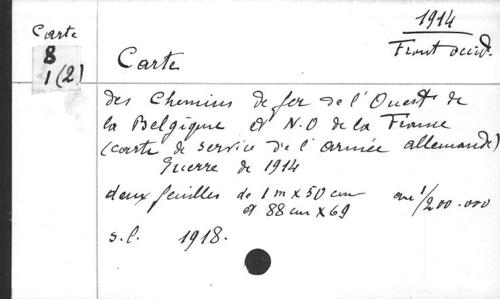 1914
Front occid.
Carte
8
1(2)
Carte
des Chemins de fer de l'Ouest de
la Belgique et N.O de la France
(carte de service de l'armée allemande)
Guerre de 1914
deux feuilles de 1 m x 50 cm
et 88 cm x 69
au 1/200.000
s.l. 1918.